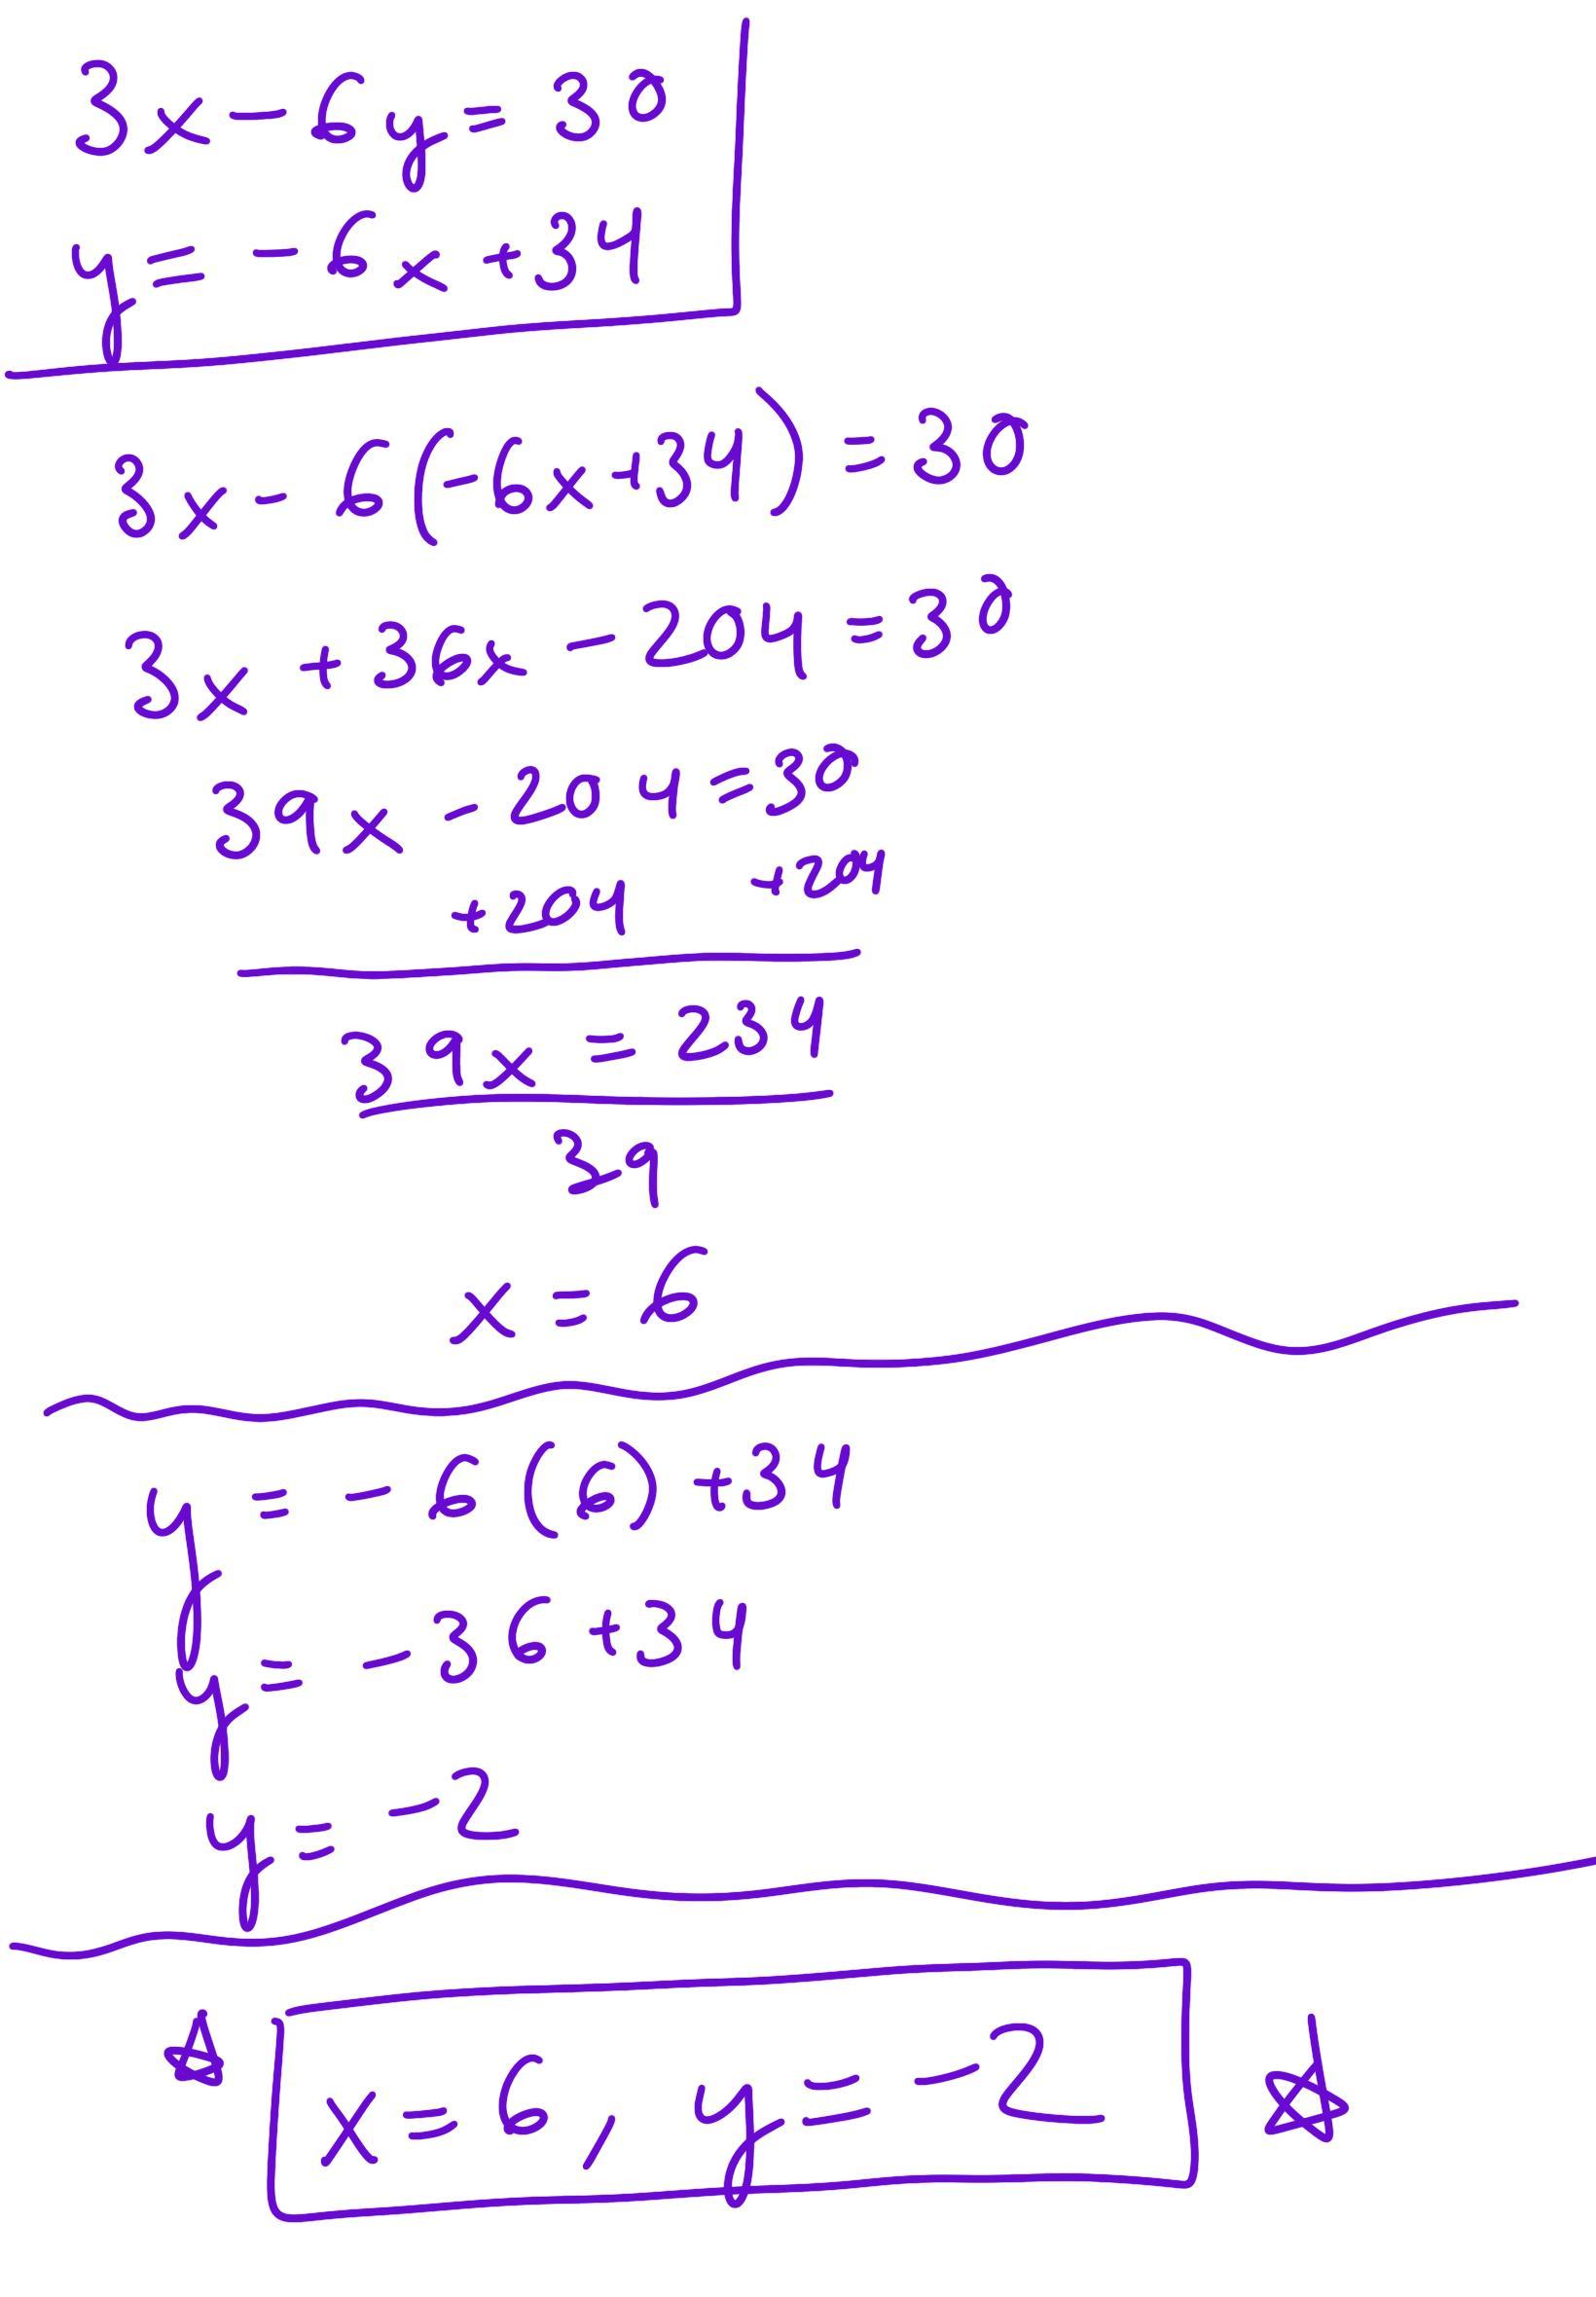 3x - 6y = 30
y = -6x + 34
3x - 6(-6x + 34) = 30
3x + 36x - 204 = 30
39x - 204 = 30
+204 +204
39x = 234
39
x = 6
y = -6(6) + 34
y = -36 + 34
y = -2
x = 6, y = -2